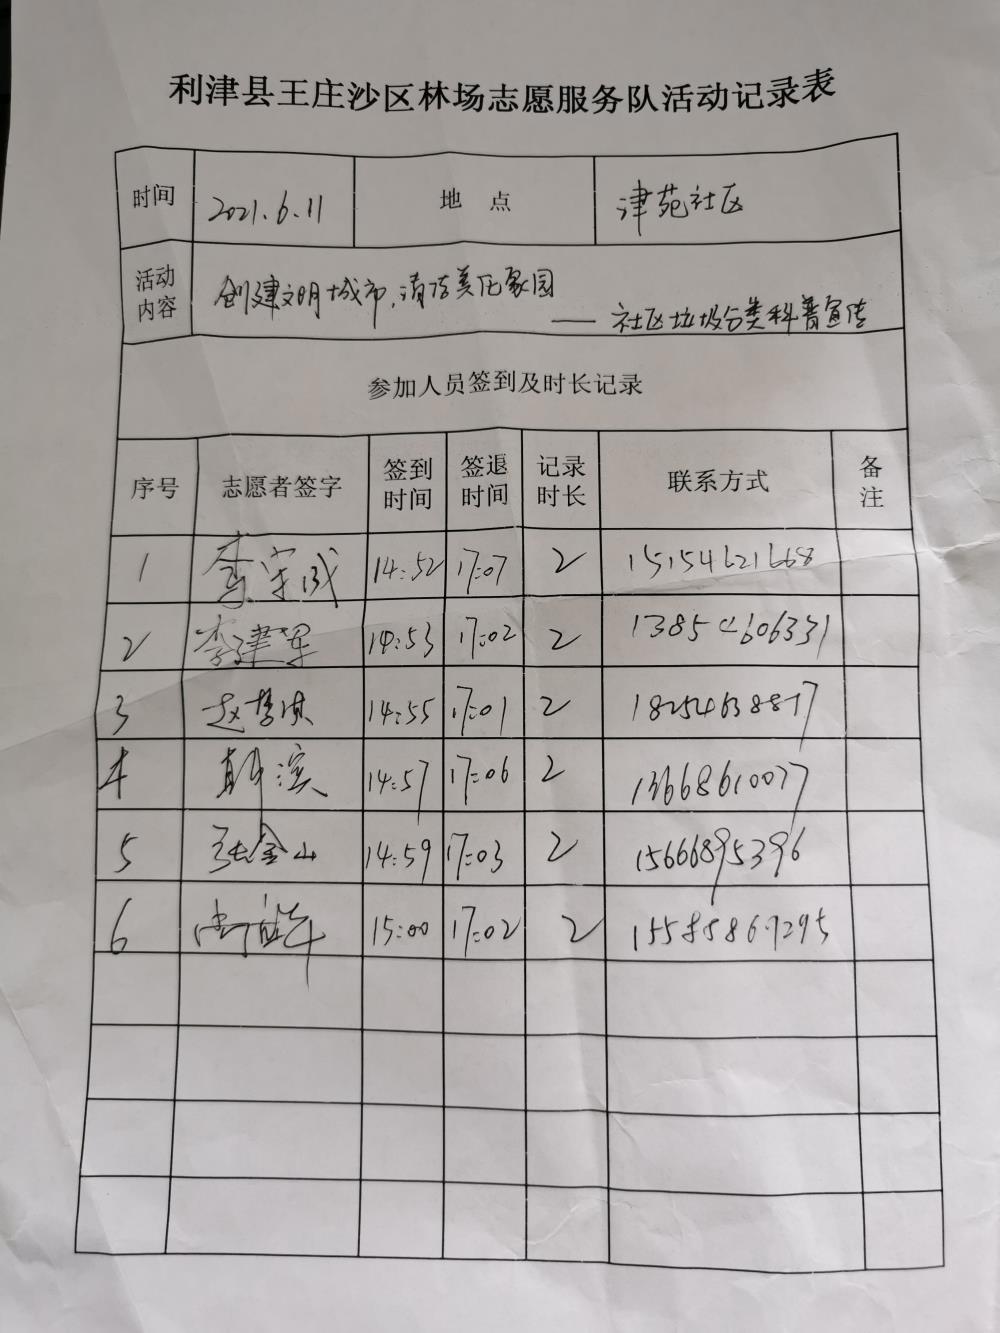 利津县王庄沙区林场志愿服务队活动记录表
时间 2021.6.11 地点 津苑社区
活动内容 创建文明城市,清洁美化家园
——社区垃圾分类科普宣传
参加人员签到及时长记录
序号 志愿者签字 签到时间 签退时间 记录时长 联系方式 备注
1 李宗成 14:52 17:07 2 15154621668
2 李建军 14:53 17:02 2 13854606331
3 赵 14:55 17:01 2 18254638817
4 韩滨 14:57 17:06 2 13668610077
5 张金山 14:59 17:03 2 15666895396
6 15:00 17:02 2